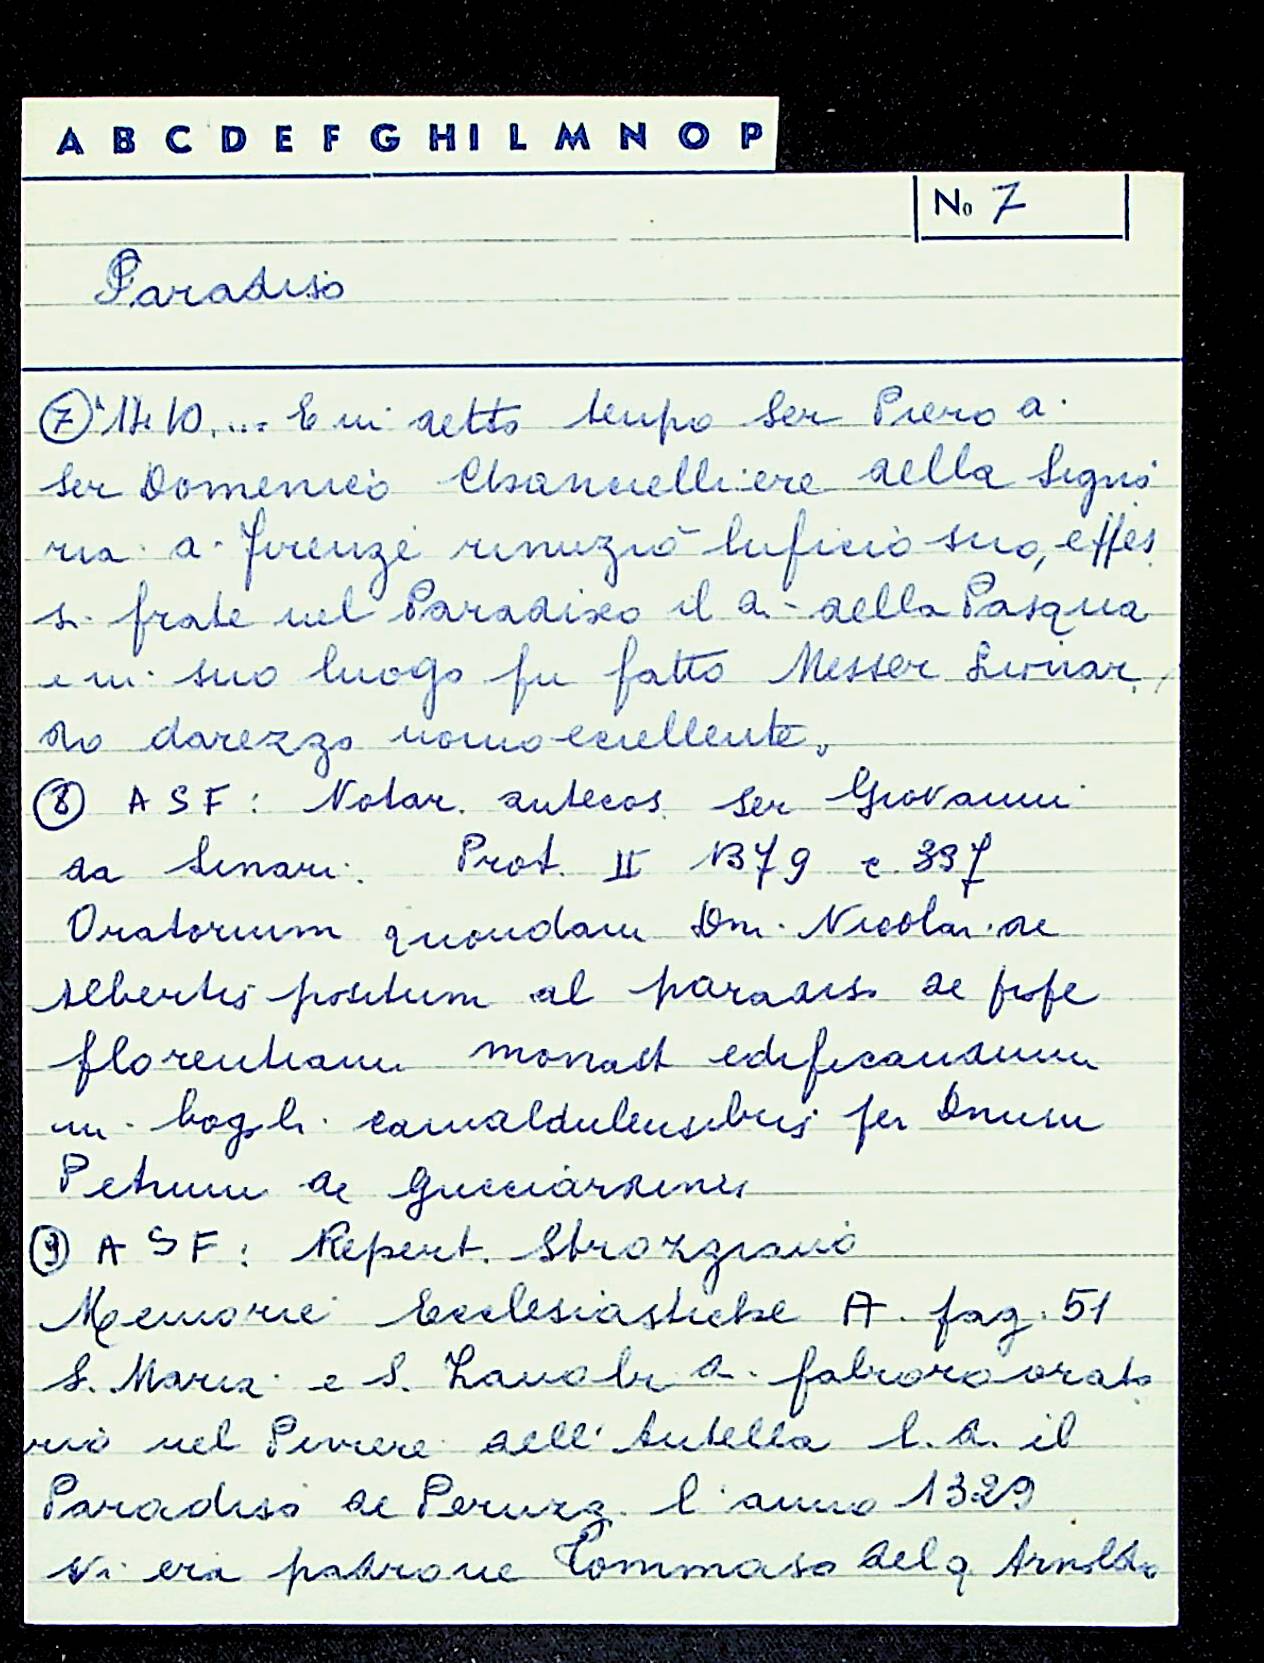 A B C D E F G H I L M N O P
No 7
Paradiso
⑦ "1410.... E in detto tempo Ser Piero d.
Ser Domenico Chancielliere della Signo
ria d. Firenze rinuziò luficio suo, effes
si frate nel Paradixo il dì della Pasqua
e in suo luogo fu fatto Messer Lionar
do darezzo uomo eciellente.
⑧ ASF: Notar. antecos. Ser Giovanni
da Linari. Prot. II 1379 c. 397
Oratorium quondam Dni. Nicolai de
Albertis positum al paradiso de pope
florentiam monast edificandum
in hogh. camaldulensibus per Dnum
Petrum de Gucciardinis
⑨ ASF: Repert. Strozziano
Memorie Ecclesiastiche A. pag. 51
S. Maria e S. Zanobi a. fabroro orato
rio nel Piviere dell'Antella l.d. il
Paradiso de Peruzz. l'anno 1329
Vi era padrone Tommaso del q Arnoldo